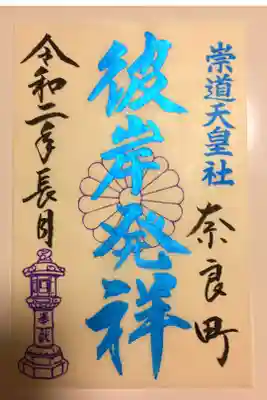 崇道天皇社
奈良町
彼岸発祥
令和二年長月